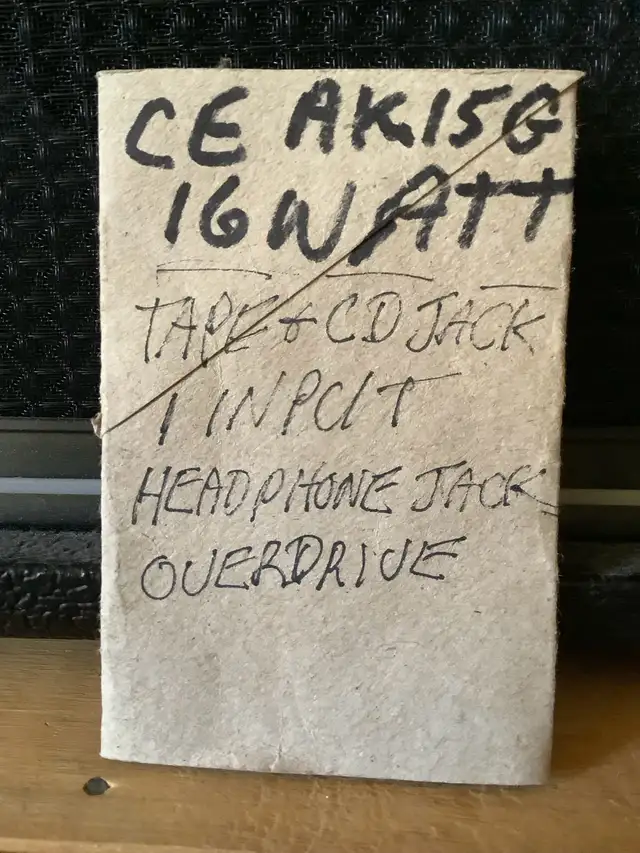 CE AK15G
16 WATT
TAPE + CD JACK
1 INPUT
HEADPHONE JACK
OVERDRIVE